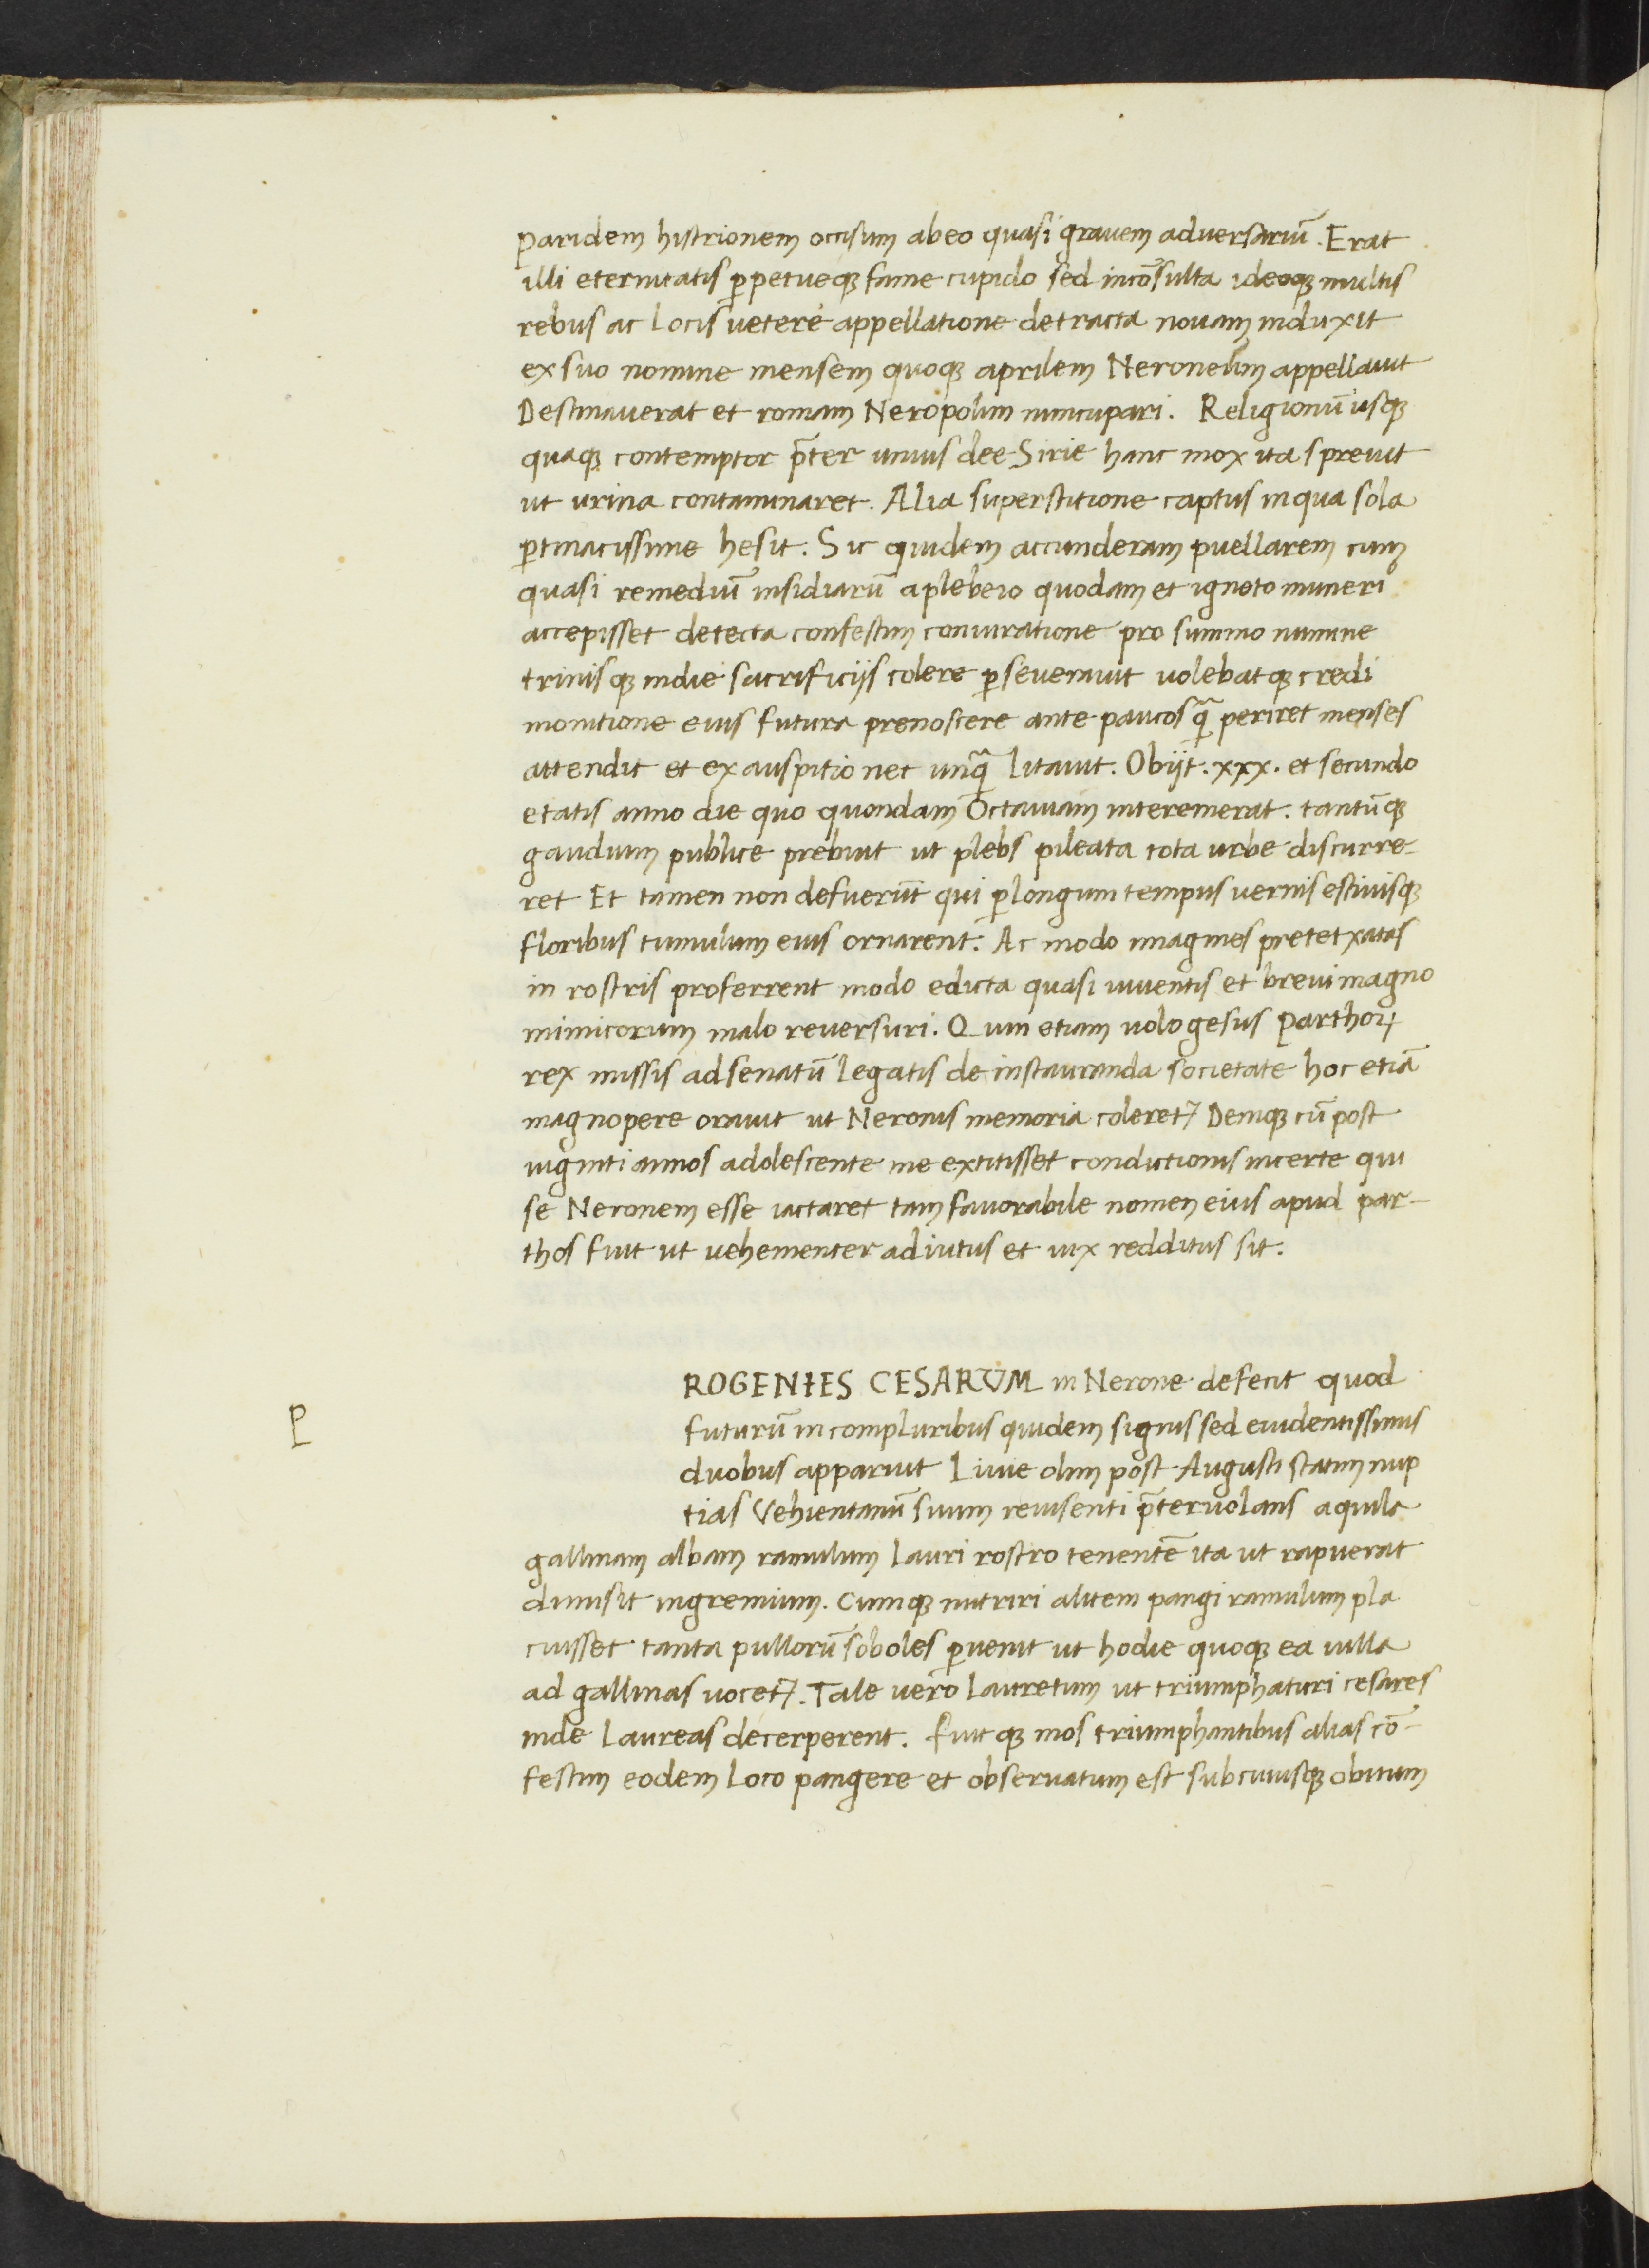 paridem histrionem occisum abeo quasi grauem aduersariū. Erat
illi eternitatis ꝑpetueqꝫ fame cupido sed incōsulta ideoqꝫ multis
rebus ac locis uetere appellatione detracta nouam induxit
ex suo nomine mensem quoqꝫ aprilem Neroneum appellauit
Destinauerat et romam Neropolim nuncupari. Religionū usqꝫ
quaqꝫ contemptor p̄ter unius dee Sirie hanc mox ita spreuit
ut urina contaminaret. Alia superstitione captus inqua sola
ꝑtinacissime hesit. Sic quidem accunderam puellarem cum
quasi remediū insidiarū aplebeio quodam et ignoto muneri
accepisset detecta confestim coniuratione pro summo numine
trinisqꝫ indie sacrificijs colere ꝑseuerauit uolebatqꝫ credi
monitione eius futura prenoscere ante paucos q̄ periret menses
attendit et exauspitio nec unq̄ litauit. Obijt. xxx. et secundo
etatis anno die quo quondam Octauiam interemerat. tantūqꝫ
gaudium publice prebuit ut plebs pileata tota urbe discurre-
ret Et tamen non defuerūt qui ꝑlongum tempus uernis estiuisqꝫ
floribus tumulum eius ornarent. Ac modo imagines pretetxatas
in rostris proferrent modo edicta quasi uiuentis et breui magno
inimicorum malo reuersuri. Quin etiam uologesus Parthoꝝ
rex missis adsenatū legatis de instauranda societate hoc etiā
magnopere orauit ut Neronis memoria coleret᷑ Deniqꝫ cū post
uiginti annos adolescente me extitisset condictionis incerte qui
se Neronem esse iactaret tam fauorabile nomen eius apud par-
thos fuit ut uehementer adiutus et uix redditus sit.
P
ROGENIES CESARUM in Nerone defecit quod
futurū in compluribus quidem signis sed euidentissimis
duobus apparuit Liuie olim post Augusti statim nup
tias Vehientanū suum reuisenti p̄teruolans aquila
gallinam albam ramulum lauri rostro tenentē ita ut rapuerat
dimisit ingremium. Cumqꝫ nutriri alitem pangi ramulum pla
cuisset tanta pullorū soboles ꝑuenit ut hodie quoqꝫ ea uilla
ad gallinas uocet᷑. Tale uero lauretum ut triumphaturi cesares
inde laureas decerperent. fuitqꝫ mos triumphantibus alias cō-
festim eodem loco pangere et obseruatum est sub cuiusqꝫ obitum